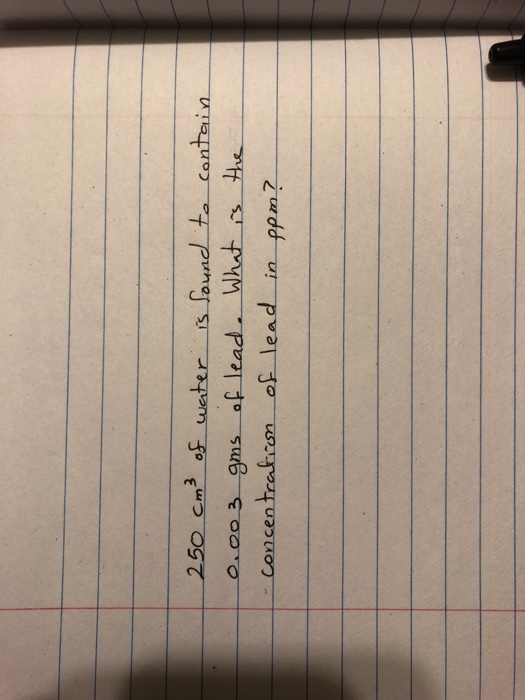 250 cm³ of water is found to contain
0.003 gms of lead. What is the
concentration of lead in ppm?